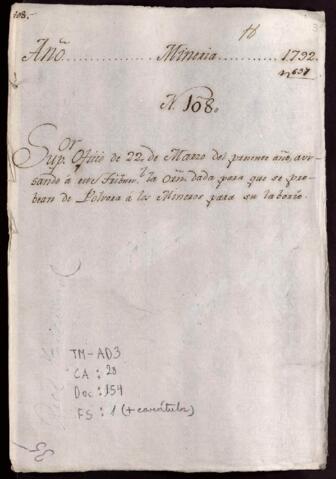 108.
18
Año. Mineria 1792.
nº 637
N. 108.
Supor. Oficio de 22. de Marzo del presente año, avi-
sando à este Tribunl. la orn. dada para que se pro-
bean de Polvora à los Mineros para su laborio.
TM-AD3
CA: 28
Doc: 154
FS: 1 (+ carátula)